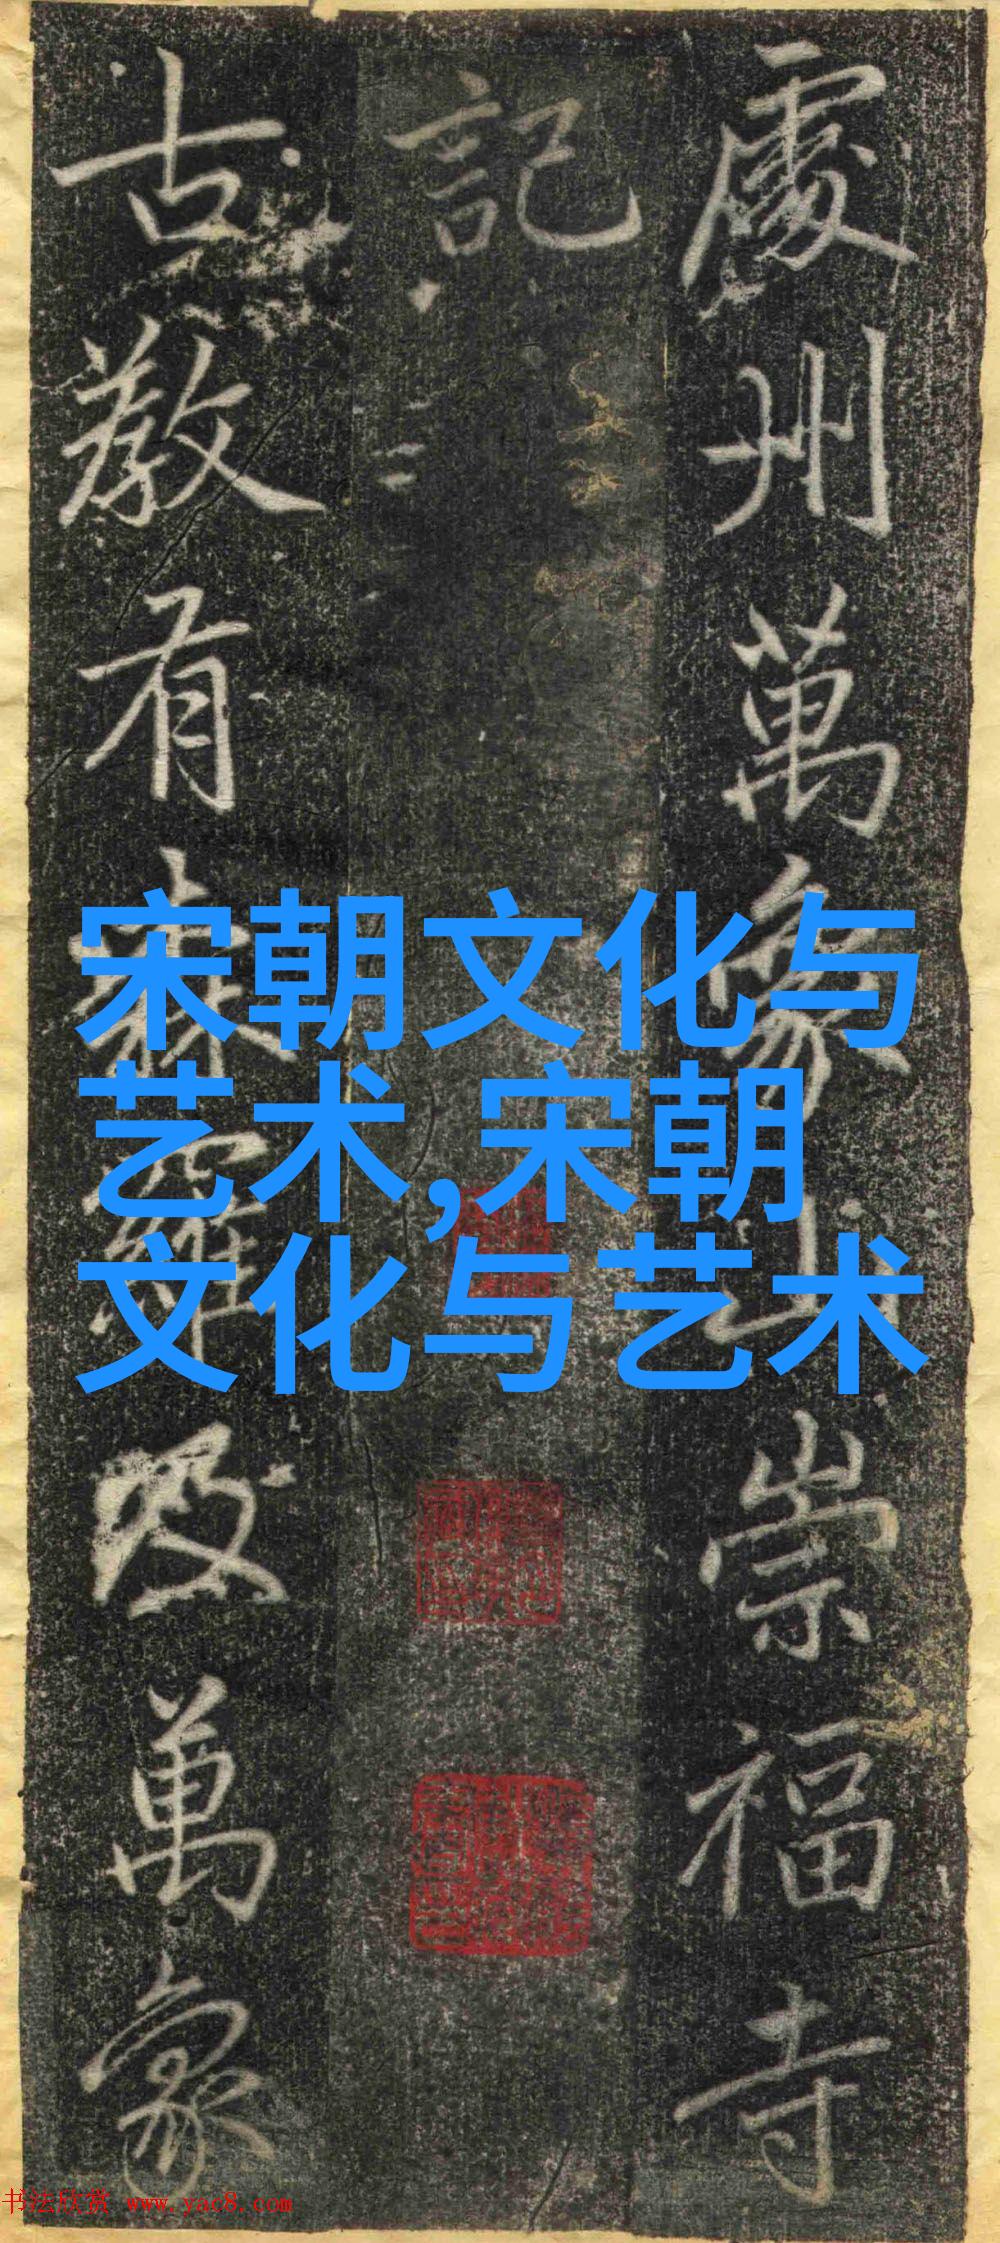 處州萬象山崇福寺
記
古教有森羅及萬象
宋朝文化与
艺术,宋朝
文化与艺术
书法欣赏 www.yac8.com